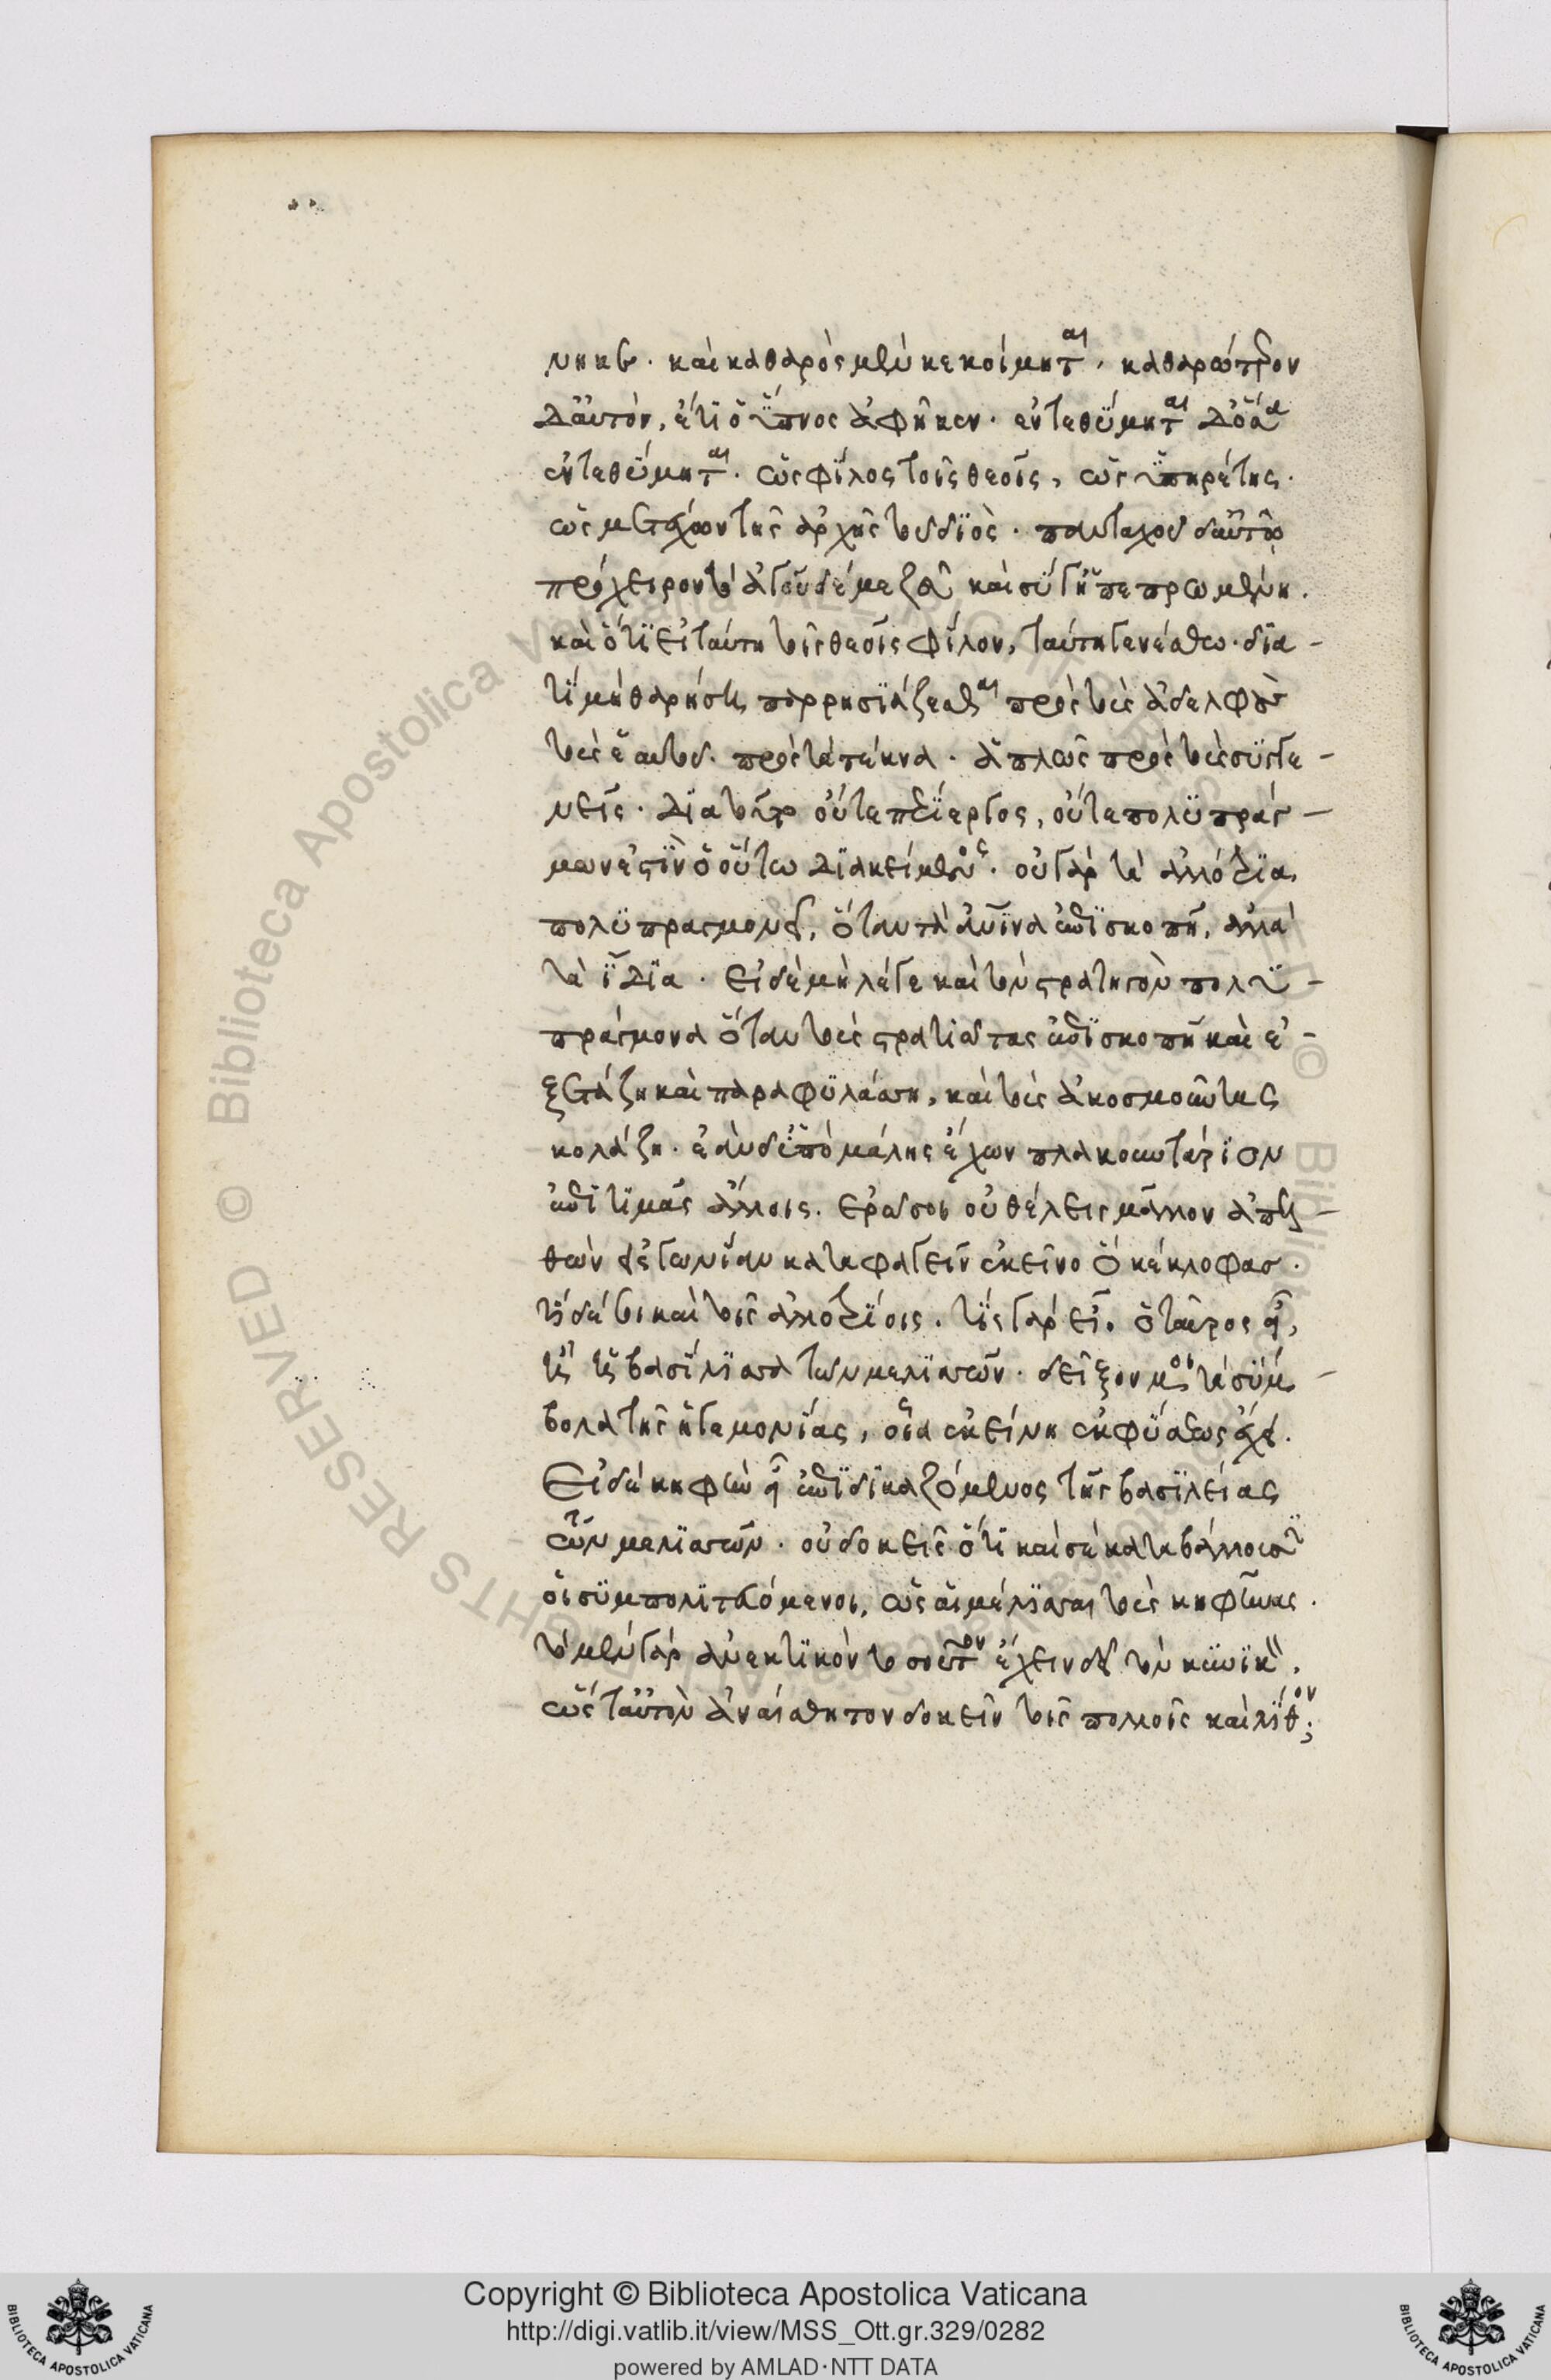 νηκε. καὶ καθαρὸς μὲν κεκοίμηται, καθαρώτερον
δ' αὐτὸν, ἔτι ὁ ὕπνος ἀφῆκεν. ἐντεθύμηται δ' ὅσα
ἐντεθύμηται. ὡς φίλος τοῖς θεοῖς, ὡς ὑπηρέτης.
ὡς μετέχων τῆς ἀρχῆς τοῦ διὸς. πανταχοῦ δ' αὐτῷ
πρόχειρον τὸ ἄγου δέ με ζεῦ καὶ σύ γ' ἡ πεπρωμένη.
καὶ ὅτι εἰ ταύτη τοῖς θεοῖς φίλον, ταύτη γενέσθω. δια -
τί μὴ θαρήση παρρησιάζεσθαι πρὸς τοὺς ἀδελφοὺς
τοὺς ἑαυτοῦ. πρὸς τὰ τέκνα. ἁπλῶς πρὸς τοὺς συγγε -
νεῖς. διὰ τοῦτο οὔτε περίεργος, οὔτε πολυπράγ -
μων ἐστὶν ὁ οὕτω διακείμενος. οὐ γὰρ τὰ ἀλλότρια
πολυπραγμονεῖ, ὅταν τὰ ἀνθρώπινα ἐπισκοπῆ, ἀλλὰ
τὰ ἴδια. εἰ δὲ μὴ λέγε καὶ τὸν στρατηγὸν πολυ -
πράγμονα ὅταν τοὺς στρατιώτας ἐπισκοπῆ καὶ ἐ -
ξετάζη καὶ παραφυλάσση, καὶ τοὺς ἀκοσμοῦντας
κολάζη. ἐὰν δ' ὑπὸ μάλης ἔχων πλακουντάριον
ἐπιτιμᾶς ἄλλοις. ἐρῶ σοι οὐ θέλεις μᾶλλον ἀπελ -
θὼν εἰς γωνίαν καταφαγεῖν ἐκεῖνο ὃ κέκλοφας.
τί δέ σοι καὶ τοῖς ἀλλοτρίοις. τίς γὰρ εἶ. ὁ ταῦρος εἶ,
ἢ ἡ βασίλισσα τῶν μελισσῶν. δεῖξόν μοι τὰ σύμ -
βολα τῆς ἡγεμονίας, οἷα ἐκείνη ἐκ φύσεως ἔχει.
Εἰ δὲ κηφὴν εἶ ἐπιδικαζόμενος τῆς βασιλείας
τῶν μελισσῶν. οὐ δοκεῖς ὅτι καὶ σὲ καταβάλλουσιν
οἱ συμπολιτευόμενοι, ὡς αἱ μέλισσαι τοὺς κηφῆνας.
τὸ μὲν γὰρ ἀνεκτικὸν τοσοῦτον ἔχειν δεῖ τὸν κυνικὸν,
ὥστ' αὐτὸν ἀναίσθητον δοκεῖν τοῖς πολλοῖς καὶ λίθον;
Copyright © Biblioteca Apostolica Vaticana
http://digi.vatlib.it/view/MSS_Ott.gr.329/0282
powered by AMLAD·NTT DATA